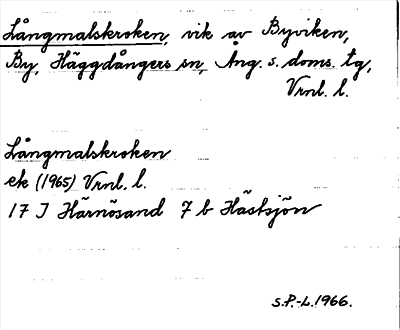 Långmalskroken, vik av Byviken,
By, Häggdångers sn, Ång. s. doms. tg,
Vrnl. l.
Långmalskroken
ek (1965) Vrnl. l.
17 J Härnösand 7 b Hästsjön
S.P.-L. 1966.